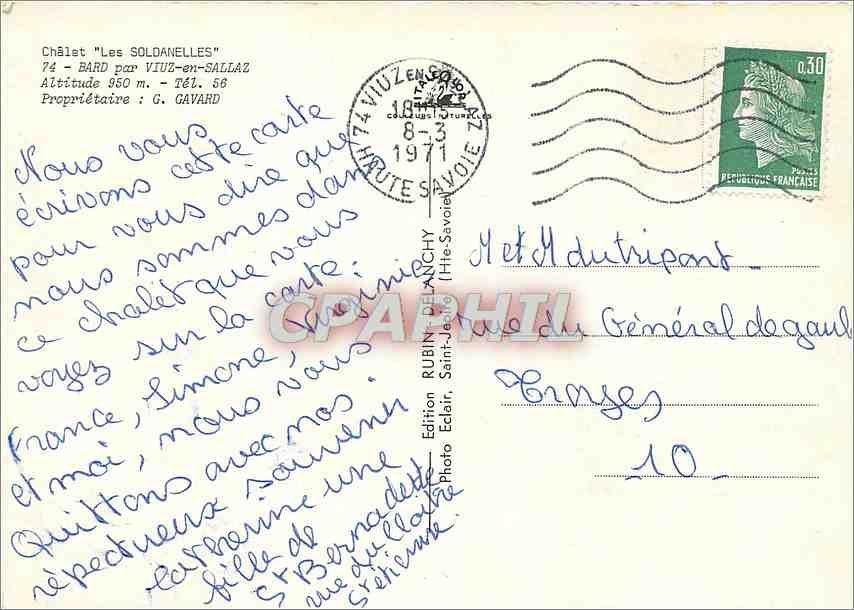 Châlet "Les SOLDANELLES"
74 - BARD par VIUZ-en-SALLAZ
Altitude 950 m. - Tél. 56
Propriétaire : G. GAVARD
Nous vous
écrivons cette carte
pour vous dire que
nous sommes dans
ce chalet que vous
voyez sur la carte:
France, Simone, Virginie
et moi, nous vous
Quittons avec nos
répectueux souvenir
une
fille de
St Bernadette
rue du
St étienne.
74 VIUZ EN SALLAZ
18H15
8-3
1971
HAUTE SAVOIE
COULEURS NATURELLES
0,30
POSTES
REPUBLIQUE FRANÇAISE
Edition RUBIN - DELANCHY
Photo Eclair, Saint-Jeoire (Hte-Savoie)
M et M dutripont
rue du Général de gaul
Troyes
10
CPAPHIL